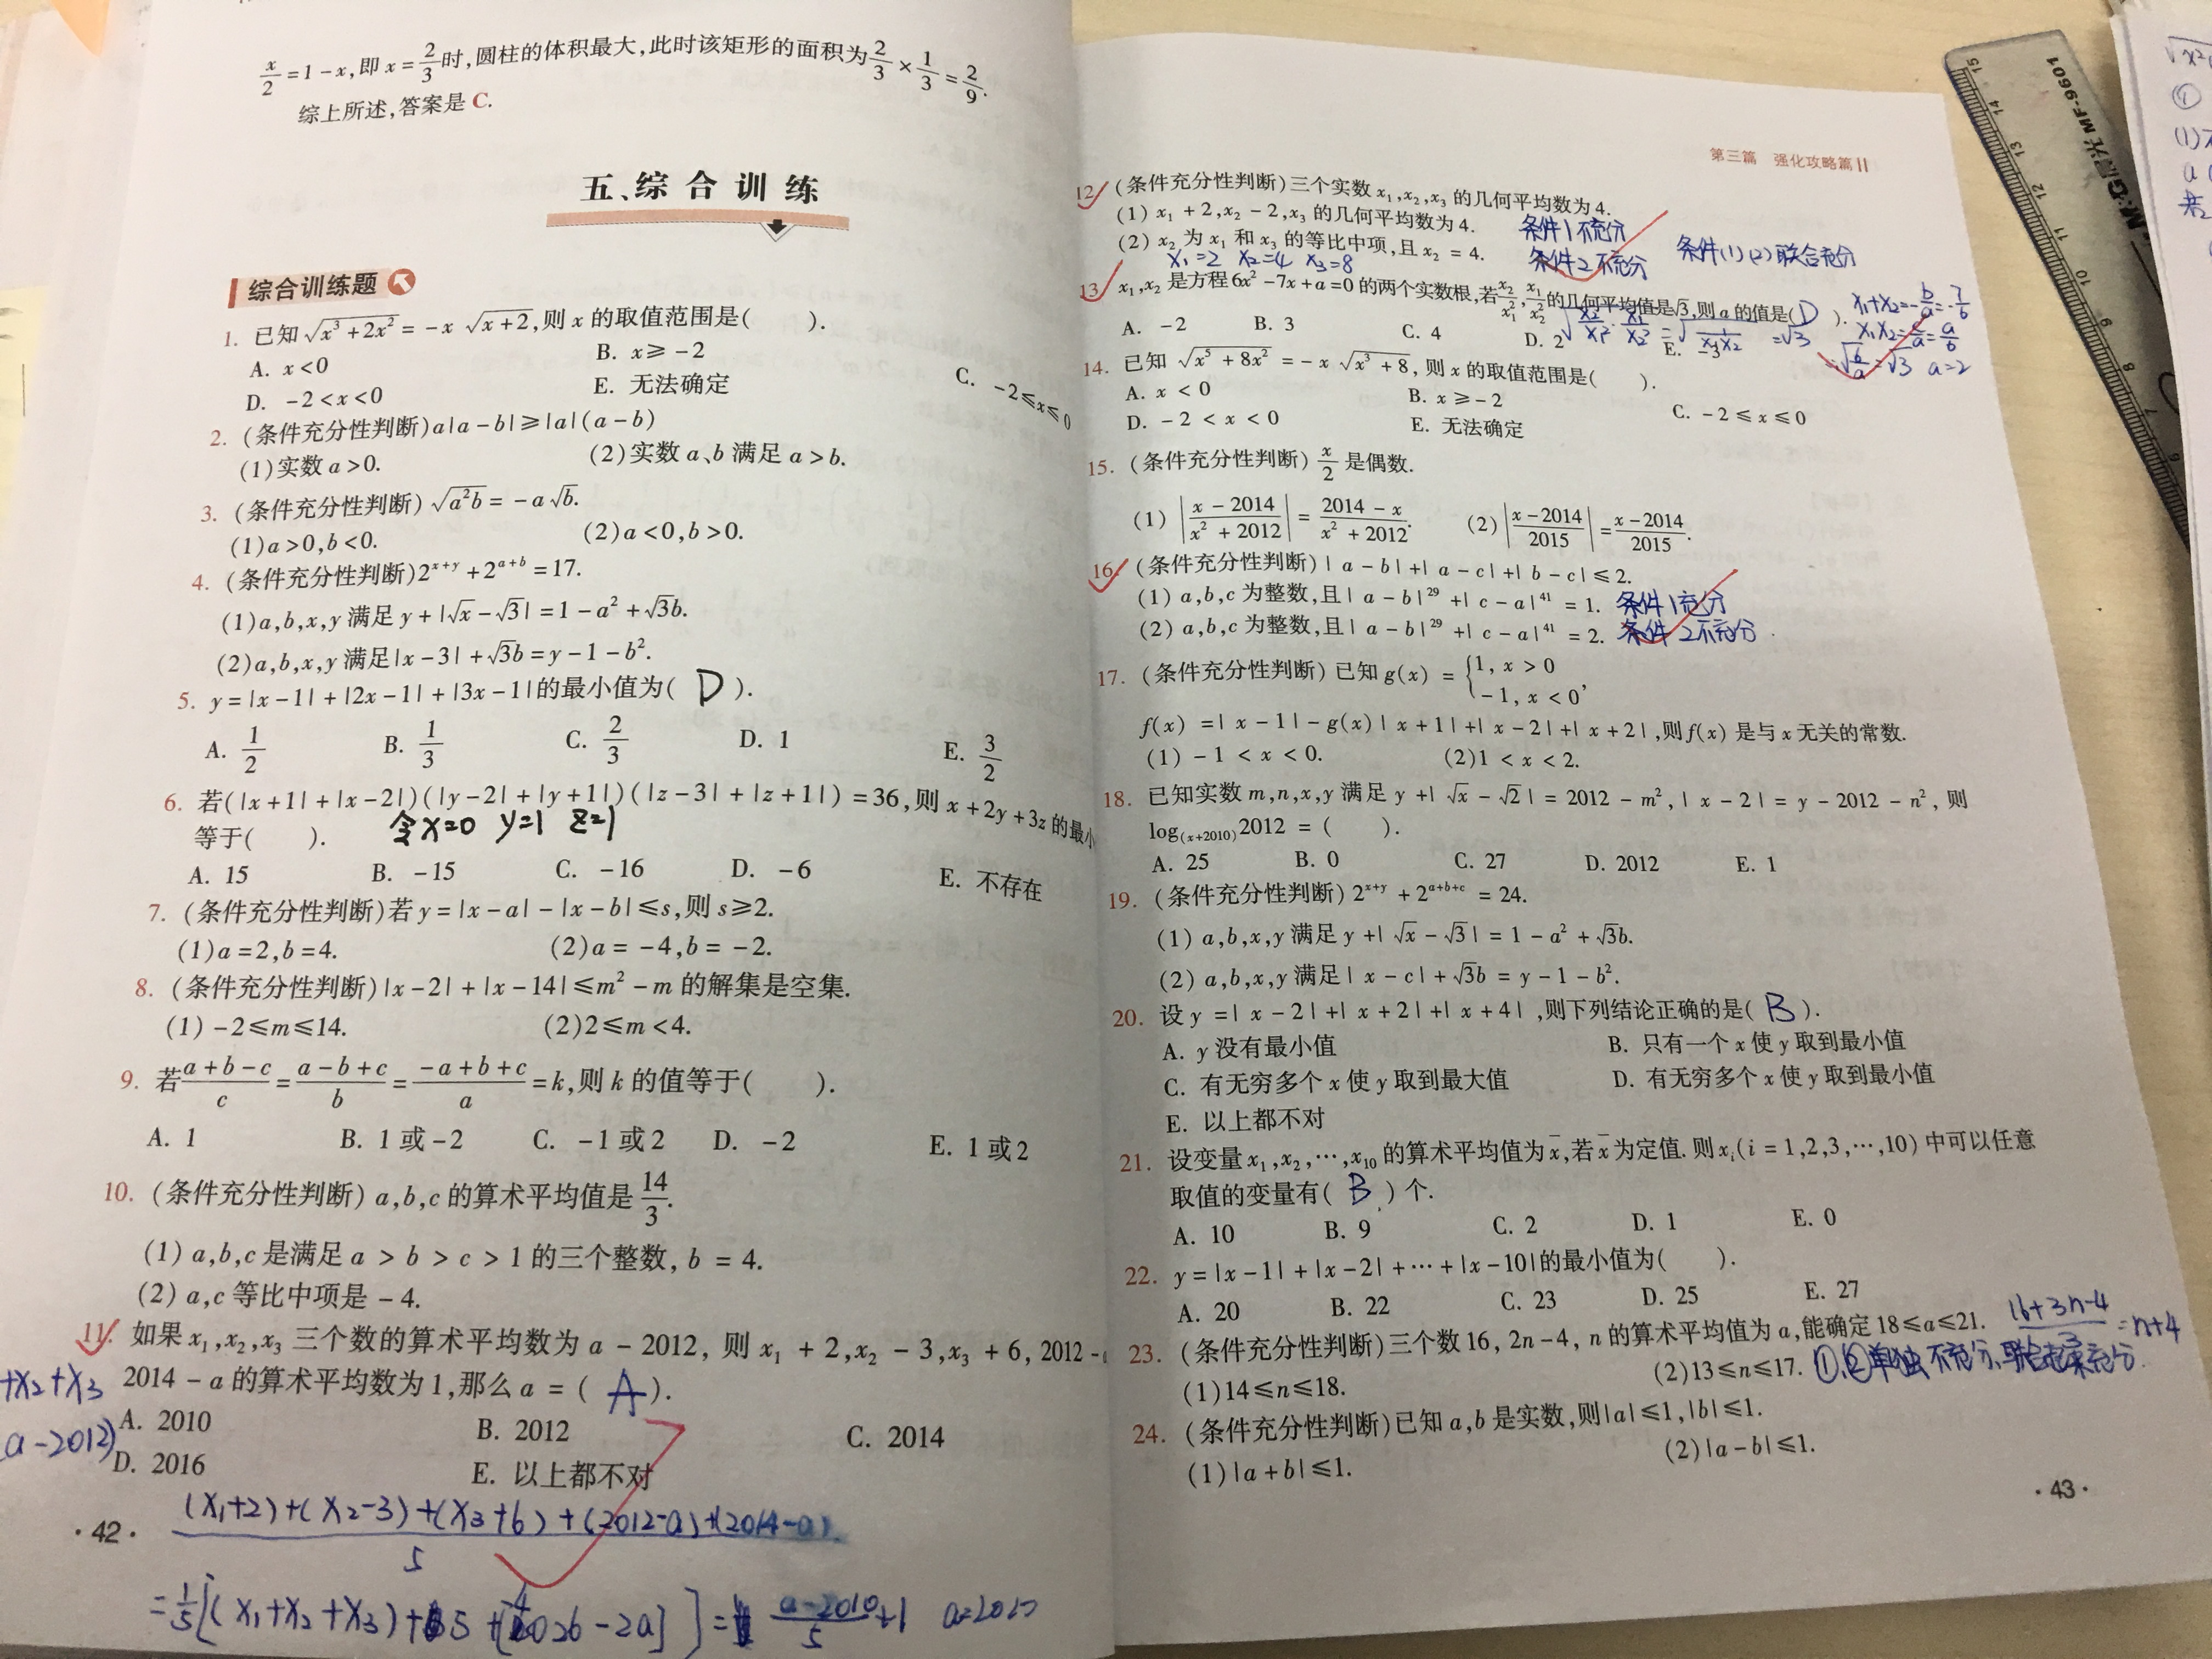 x/2 = 1 - x, 即 x = 2/3 时, 圆柱的体积最大, 此时该矩形的面积为 2/3 × 1/3 = 2/9.
综上所述, 答案是 C.
五、综合训练
综合训练题
1. 已知 √(x³+2x²) = -x √(x+2), 则 x 的取值范围是(    ).
A. x<0    B. x≥-2    C. -2≤x≤0
D. -2<x<0    E. 无法确定
2. (条件充分性判断) a|a-b|≥|a|(a-b)
(1)实数 a>0.    (2)实数 a、b 满足 a>b.
3. (条件充分性判断) √(a²b) = -a√b.
(1)a>0,b<0.    (2)a<0,b>0.
4. (条件充分性判断) 2^(x+y) + 2^(a+b) = 17.
(1)a,b,x,y 满足 y+|√x-√3|=1-a²+√3b.
(2)a,b,x,y 满足|x-3|+√3b=y-1-b².
5. y=|x-1|+|2x-1|+|3x-1|的最小值为( D ).
A. 1/2    B. 1/3    C. 2/3    D. 1    E. 3/2
6. 若(|x+1|+|x-2|)(|y-2|+|y+1|)(|z-3|+|z+1|)=36, 则 x+2y+3z 的最小
等于(    ).    令x=0 y=1 z=1
A. 15    B. -15    C. -16    D. -6    E. 不存在
7. (条件充分性判断)若 y=|x-a|-|x-b|≤s, 则 s≥2.
(1)a=2,b=4.    (2)a=-4,b=-2.
8. (条件充分性判断)|x-2|+|x-14|≤m²-m 的解集是空集.
(1)-2≤m≤14.    (2)2≤m<4.
9. 若 (a+b-c)/c = (a-b+c)/b = (-a+b+c)/a = k, 则 k 的值等于(    ).
A. 1    B. 1 或 -2    C. -1 或 2    D. -2    E. 1 或 2
10. (条件充分性判断) a,b,c 的算术平均值是 14/3.
(1) a,b,c 是满足 a>b>c>1 的三个整数, b=4.
(2) a,c 等比中项是 -4.
11. 如果 x₁,x₂,x₃ 三个数的算术平均数为 a-2012, 则 x₁+2,x₂-3,x₃+6, 2012-
2014-a 的算术平均数为 1, 那么 a=( A ).
+x₂+x₃
(a-2012)
A. 2010    B. 2012    C. 2014
D. 2016    E. 以上都不对
(x₁+2)+(x₂-3)+(x₃+6)+(2012-a)+(2014-a)
5
=1/5[(x₁+x₂+x₃)+5+[4026-2a]]= (a-2010)/5+1
·42·
第三篇 强化攻略篇
12. (条件充分性判断)三个实数 x₁,x₂,x₃ 的几何平均数为 4.
(1) x₁+2,x₂-2,x₃ 的几何平均数为 4.    条件1不充分
(2) x₂ 为 x₁ 和 x₃ 的等比中项, 且 x₂=4.    条件2不充分    条件(1)(2)联合充分
x₁=2 x₂=4 x₃=8
13. x₁,x₂ 是方程 6x²-7x+a=0 的两个实数根, 若 x₂/x₁², x₁/x₂² 的几何平均值是√3, 则 a 的值是( D ).
A. -2    B. 3    C. 4    D. 2    E. -3
√(x₂/x₁² · x₁/x₂²) = √(1/(x₁x₂)) = √3
x₁+x₂=-b/a=-7/6
x₁x₂=c/a=a/6
√(6/a)=√3 a=2
14. 已知 √(x⁵+8x²) = -x √(x³+8), 则 x 的取值范围是(    ).
A. x<0    B. x≥-2    C. -2≤x≤0
D. -2<x<0    E. 无法确定
15. (条件充分性判断) x/2 是偶数.
(1) |(x-2014)/(x²+2012)| = (2014-x)/(x²+2012).    (2) |(x-2014)/2015| = (x-2014)/2015.
16. (条件充分性判断)|a-b|+|a-c|+|b-c|≤2.
(1) a,b,c 为整数, 且|a-b|²⁹+|c-a|⁴¹=1.    条件1充分
(2) a,b,c 为整数, 且|a-b|²⁹+|c-a|⁴¹=2.    条件2不充分
17. (条件充分性判断) 已知 g(x) = {1, x>0
-1, x<0,
f(x)=|x-1|-g(x)|x+1|+|x-2|+|x+2|, 则 f(x) 是与 x 无关的常数.
(1) -1<x<0.    (2)1<x<2.
18. 已知实数 m,n,x,y 满足 y+|√x-√2|=2012-m², |x-2|=y-2012-n², 则
log₍ₓ₊₂₀₁₀₎2012=(    ).
A. 25    B. 0    C. 27    D. 2012    E. 1
19. (条件充分性判断) 2^(x+y) + 2^(a+b+c) = 24.
(1) a,b,x,y 满足 y+|√x-√3|=1-a²+√3b.
(2) a,b,x,y 满足|x-c|+√3b=y-1-b².
20. 设 y=|x-2|+|x+2|+|x+4|, 则下列结论正确的是( B ).
A. y 没有最小值    B. 只有一个 x 使 y 取到最小值
C. 有无穷多个 x 使 y 取到最大值    D. 有无穷多个 x 使 y 取到最小值
E. 以上都不对
21. 设变量 x₁,x₂,…,x₁₀ 的算术平均值为 x̄, 若 x̄ 为定值. 则 xᵢ(i=1,2,3,…,10) 中可以任意
取值的变量有( B )个.
A. 10    B. 9    C. 2    D. 1    E. 0
22. y=|x-1|+|x-2|+…+|x-10|的最小值为(    ).
A. 20    B. 22    C. 23    D. 25    E. 27
23. (条件充分性判断)三个数 16, 2n-4, n 的算术平均值为 a, 能确定 18≤a≤21.    (16+3n-4)/3=n+4
(1)14≤n≤18.    (2)13≤n≤17.    ①、②单独不充分,联合起来充分.
24. (条件充分性判断)已知 a,b 是实数, 则|a|≤1,|b|≤1.
(1)|a+b|≤1.    (2)|a-b|≤1.
·43·
M&G 晨光 MF-9601
15 14 13 12 11 10 9 8 7 6